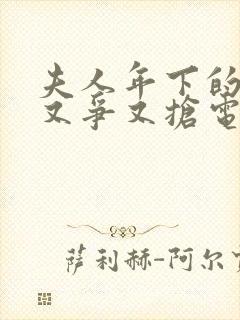 夫人年下的
又爭又搶電
萨利赫-阿尔